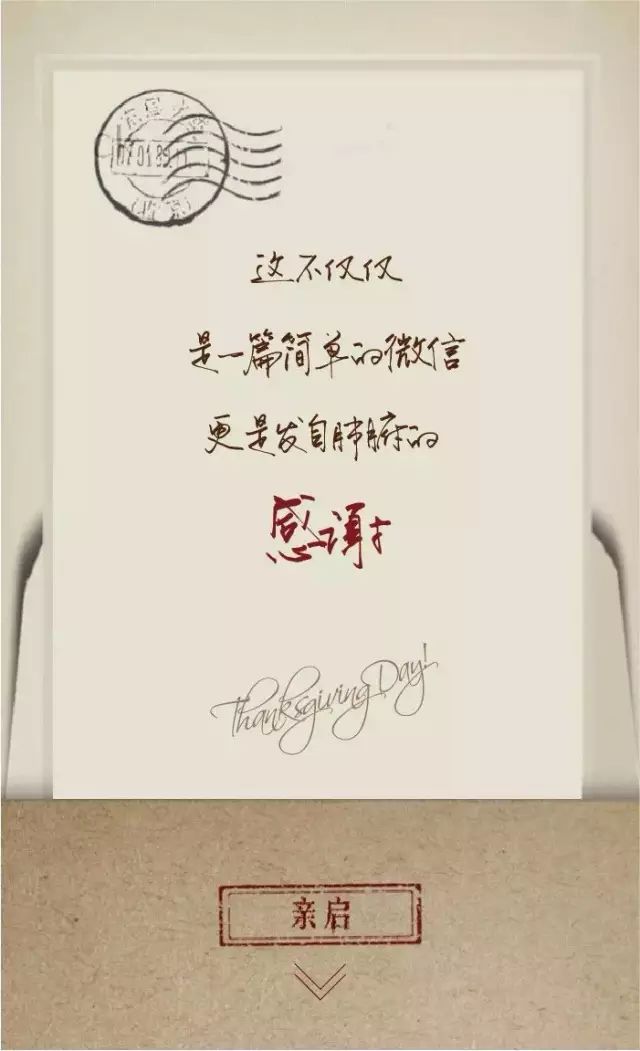 这不仅仅
是一篇简单的微信
更是发自肺腑的
感谢
Thanksgiving Day!
亲启